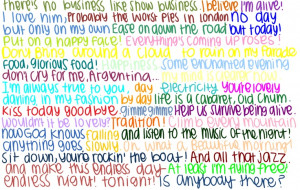 there's no business like show business I believe I'm alive!
I love him, Probably the worst pies in London no day
but only on my own Ease on down the road but today!
Put on a happy face! Everything's coming up roses!
food, glorious food! Happiness some enchanted evening
don't cry for me, Argentina...
I'm always true to you, day electricity You're lovely
darling in my fashion by day life is a cabaret, old chum
kiss today goodbye. gimme gimme Help us survive being alive
Wouldn't it be lovely? Tradition! Climb every mountain
now God knows falling and listen to the music of the night!
anything goes slowly, Oh what a Beautiful morning
sit down, you're rockin' the boat! And all that jazz
and make this endless day At least I'm flying free!
endless night! tonight! Is anybody there?